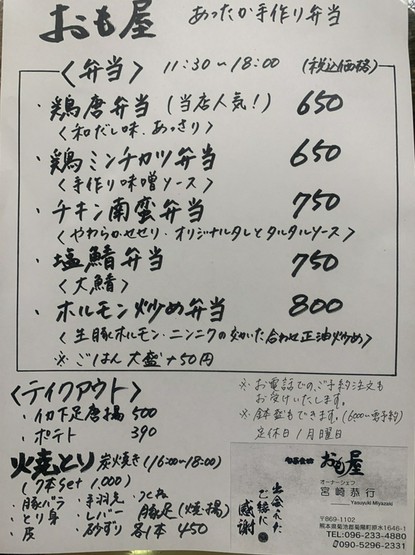 おも屋 あったか手作り弁当
〈弁当〉 11:30～18:00 (税込価格)
・鶏唐弁当(当店人気!) 650
〈和だし味.あっさり〉
・鶏ミンチカツ弁当 650
〈手作り味噌ソース〉
・チキン南蛮弁当 750
〈やわらかせせり・オリジナルタレとタルタルソース〉
・塩鯖弁当 750
〈大鯖〉
・ホルモン炒め弁当 800
〈生豚ホルモン・ニンニクの効いた合わせ正油炒め〉
※ごはん大盛+50円
〈テイクアウト〉
・切下足唐揚 500
・ポテト 390
※お電話でのご予約注文も
お受けいたします。
※鉢盛もできます。(6000～要予約)
定休日1月曜日
火焼とり 炭焼き(16:00～18:00)
(7本set 1,000)
・豚バラ ・手羽先 ・つくね
・とり身 ・レバー ・豚足(焼・揚)
・皮 ・砂ずり 各1本 450
出会えた
ご縁に
感謝
おも屋
オーナーシェフ
宮崎 恭行
Yasuyuki Miyazaki
〒869-1102
熊本県菊池郡菊陽町原水1646-1
TEL:096-233-4880
090-5296-2331